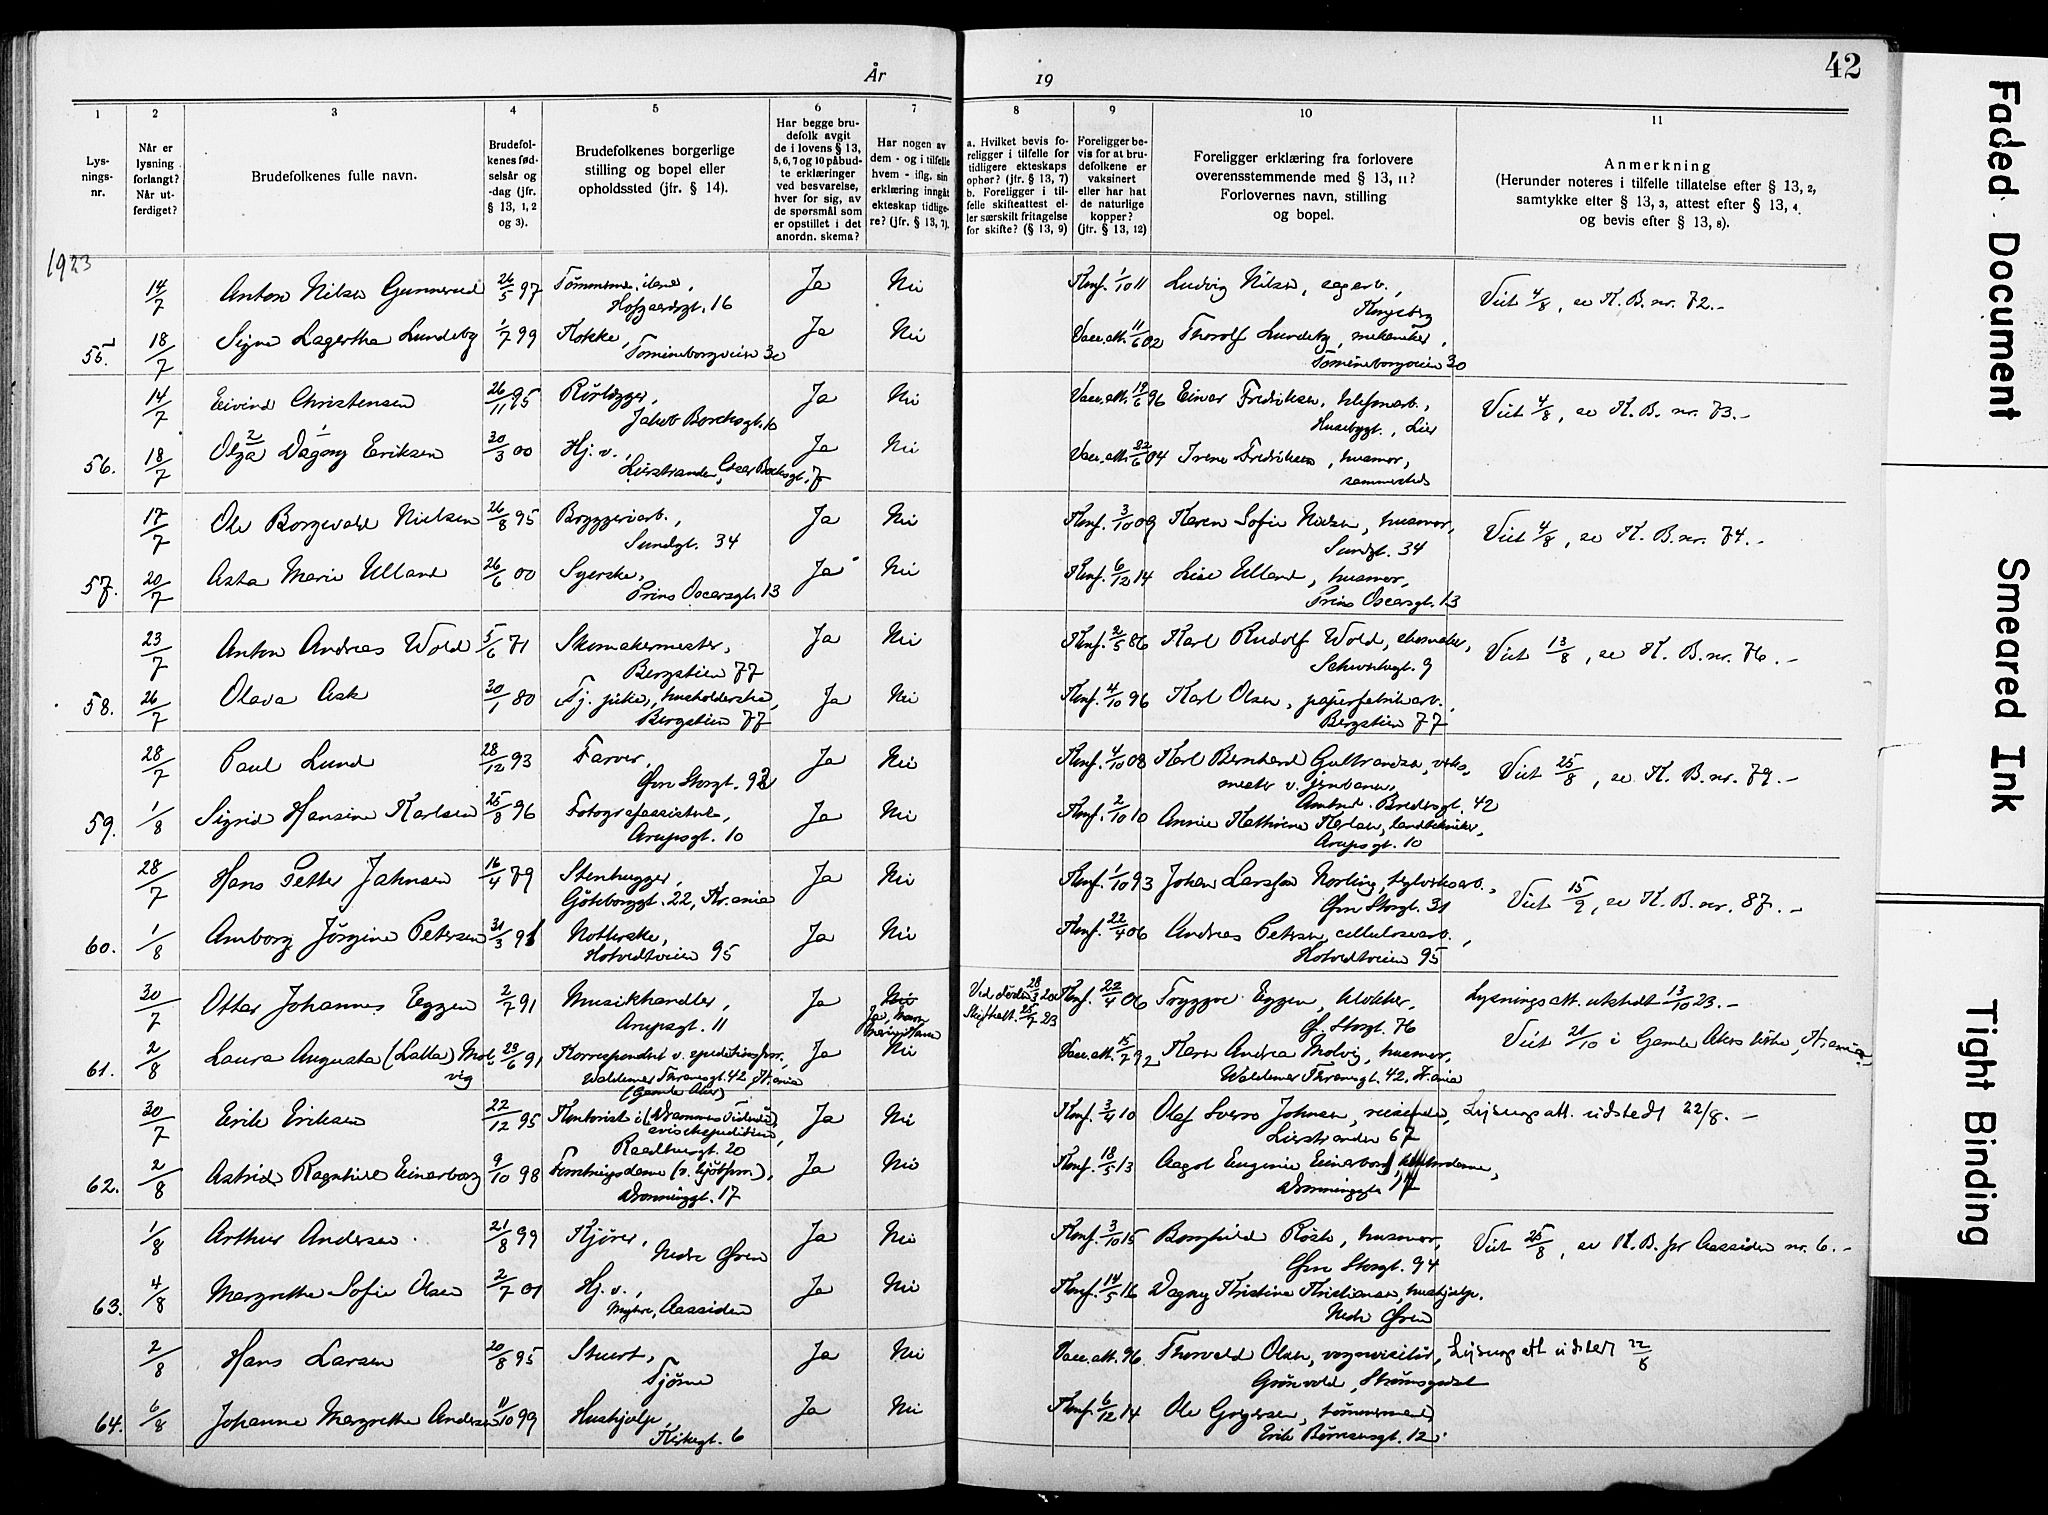 År
19
42
1
2
3
4
5
6
7
8
9
10
11
Lys-
nings-
nr.
Når er
lysning
forlangt?
Når ut-
ferdiget?
Brudefolkenes fulle navn.
Brudefol-
kenes fød-
selsår og
-dag (jfr.
§ 13, 1, 2
og 3).
Brudefolkenes borgerlige
stilling og bopel eller
opholdssted (jfr. § 14).
Har begge bru-
defolk avgit
de i lovens § 13,
5, 6, 7 og 10 påbud-
te erklæringer
ved besvarelse,
hver for sig, av
de spørsmål som
er opstillet i det
anordn. skema?
Har nogen av
dem - og i tilfelle
hvem - iflg. sin
erklæring inngåt
ekteskap tidlige-
re? (jfr. § 13, 7).
a. Hvilket bevis fo-
religger i tilfelle for
tidligere ekteskaps
ophør? (jfr. § 13, 7)
b. Foreligger i til-
felle skifteattest el-
ler særskilt fritagelse
for skifte? (§ 13, 9)
Foreligger be-
vis for at bru-
defolkene er
vaksinert
eller har hat
de naturlige
kopper?
(jfr. § 13, 12)
Foreligger erklæring fra forlovere
overensstemmende med § 13, 11?
Forlovernes navn, stilling
og bopel.
Anmerkning
(Herunder noteres i tilfelle tillatelse efter § 13, 2,
samtykke efter § 13, 3, attest efter § 13, 4
og bevis efter § 13, 8).
1923
14/7 Anton Nilsen Gunnerud 26/5 97 Ja Nei Konf. 1/10 11 Ludvig Nilsen, sagarb., Viet 4/8, se K. B. nr. 72.-
Hofgaardsgt. 16 Kongsberg
55. 18/7 Signe Lagertha Lundeby 1/7 99 Kokke, Ja Nei Vacc. att. 11/6 02 Thorolf Lundeby, mekaniker,
Tømmeborgveien 30 Tømmeborgveien 30
14/7 Eivind Christensen 26/11 95 Rørlegger, Ja Nei Vacc. att. 19/6 96 Einar Fredriksen, Viet 4/8, se K. B. nr. 73.-
Jakob Borchsgt. 10 Husebygt., Lier
56. 18/7 Olga 2 Dagny 1 Eriksen 30/3 00 Hj. v., Ja Nei Vacc. att. 04 Irene Fredriksen, husmor,
Lierstranden, 7 sammesteds
17/7 Ole Borgevald Nielsen 26/8 95 Bryggeriarb., Ja Nei Konf. 3/10 09 Karen Sofie Nielsen, husmor, Viet 4/8, se K. B. nr. 74.-
Sundgt. 34 Sundgt. 34
57. 20/7 Asta Marie Ulland 26/6 00 Syerske, Ja Nei Konf. 6/12 14 Lise Ulland, husmor,
Prins Oscarsgt. 13 Prins Oscarsgt. 13
23/7 Anton Andreas Wold 5/6 71 Skomakermester, Ja Nei Konf. 2/5 86 Karl Rudolf Wold, skomaker, Viet 13/8, se K. B. nr. 76.-
Bergstien 77 Schwartzgt. 9
58. 26/7 Olava Ask 30/1 80 Fj. pike, husholderske, Ja Nei Konf. 4/10 96 Karl Olsen, papirfabrikarb.,
Bergstien 77 Bergstien 77
28/7 Paul Lund 28/12 93 Farver, Ja Nei Konf. 4/10 08 Karl Bernhard Gulbrandsen, verks- Viet 25/8, se K. B. nr. 79.-
Øvre Storgt. 92 mester v. jernbanen,
Amtmd. Bredesgt. 42
59. 1/8 Sigrid Hansine Karlsen 25/8 96 Fotografassistent, Ja Nei Konf. 2/10 10 Annie Kathrine Karlsen, tandtekniker,
Arupsgt. 10 Arupsgt. 10
28/7 Hans Petter Jahnsen 16/4 79 Stenhugger, Ja Nei Konf. 1/10 93 Johan Larsson Norling, teglverksarb., Viet 15/9, se K. B. nr. 87.-
Göteborggt. 22, Kr.ania Øvre Storgt. 31
60. 1/8 Amborg Jørgine Petersen 31/3 91 Notterske, Ja Nei Konf. 22/4 06 Andreas Petersen, cellulosearb.,
Hotvedtveien 95 Hotvedtveien 95
30/7 Ottar Johannes Eggen 2/7 91 Musikhandler, Ja Nei Ved døden 28/3 20 Konf. 22/4 06 Tryggve Eggen, klokker, Lysningsatt. utstedt 13/10 23.-
Arupsgt. 11 Skifteatt. 25/7 23 Ø. Storgt. 76
61. 2/8 Laura Augusta (Lalla) Mol- 23/6 91 Korrespondent v. Ja Nei Vacc. att. 15/7 92 Karen Andrea Molvig, husmor, Viet 21/10 i Gamle Akers kirke, Kr.ania
vig Waldemar Thranesgt. 42, Kr.ania Waldemar Thranesgt. 42, Kr.ania
(Gamle Aker)
30/7 Erik Eriksen 22/12 95 Kontorist i (Drammens Tidende's Ja Nei Konf. 3/4 10 Olaf Sverre Johnsen, reisende, Lysningsatt. udstedt 22/8.-
avisekspedition), Lierstranden 67
Raadhusgt. 20
62. 2/8 Astrid Ragnhild Einarborg 9/10 98 Forretningsdame Ja Nei Konf. 18/5 13 Aagot Eugenie Einarborg,
Dronninggt. 17 Dronninggt. 17
1/8 Arthur Andersen 21/8 99 Kjører, Ja Nei Konf. 3/10 15 Borghild Røste, husmor, Viet 25/8, se K. B. for Aassiden nr. 6.-
Nedre Øren Øvre Storgt. 94
63. 4/8 Margrethe Sofie Olsen 2/7 01 Hj. v., Ja Nei Konf. 14/5 16 Dagny Kristine Kristiansen, hushjelp.
Myhre, Aassiden Nedre Øren
2/8 Hans Larsen 20/8 95 Stuert, Ja Nei Vacc. att. 96. Thorvald Olsen, vognvisitør, Lysningsatt udstedt 22/8
Tjøme Grønvold, Strømsgodset
64. 6/8 Johanne Margrethe Andersen 11/10 99 Hushjelp, Ja Nei Konf. 6/12 14 Ole Gregersen, tømmermand,
Kirkegt. 6 Erik Børresensgt. 12.
Faded Document
Smeared Ink
Tight Binding